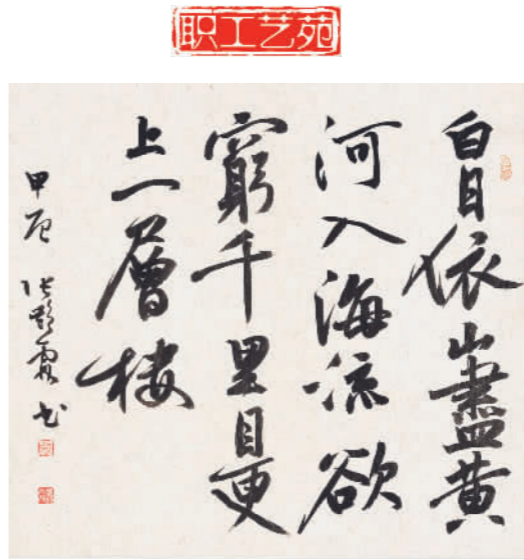 职工艺苑
白日依山盡黄
河入海流欲
窮千里目更
上一層樓
甲辰
书